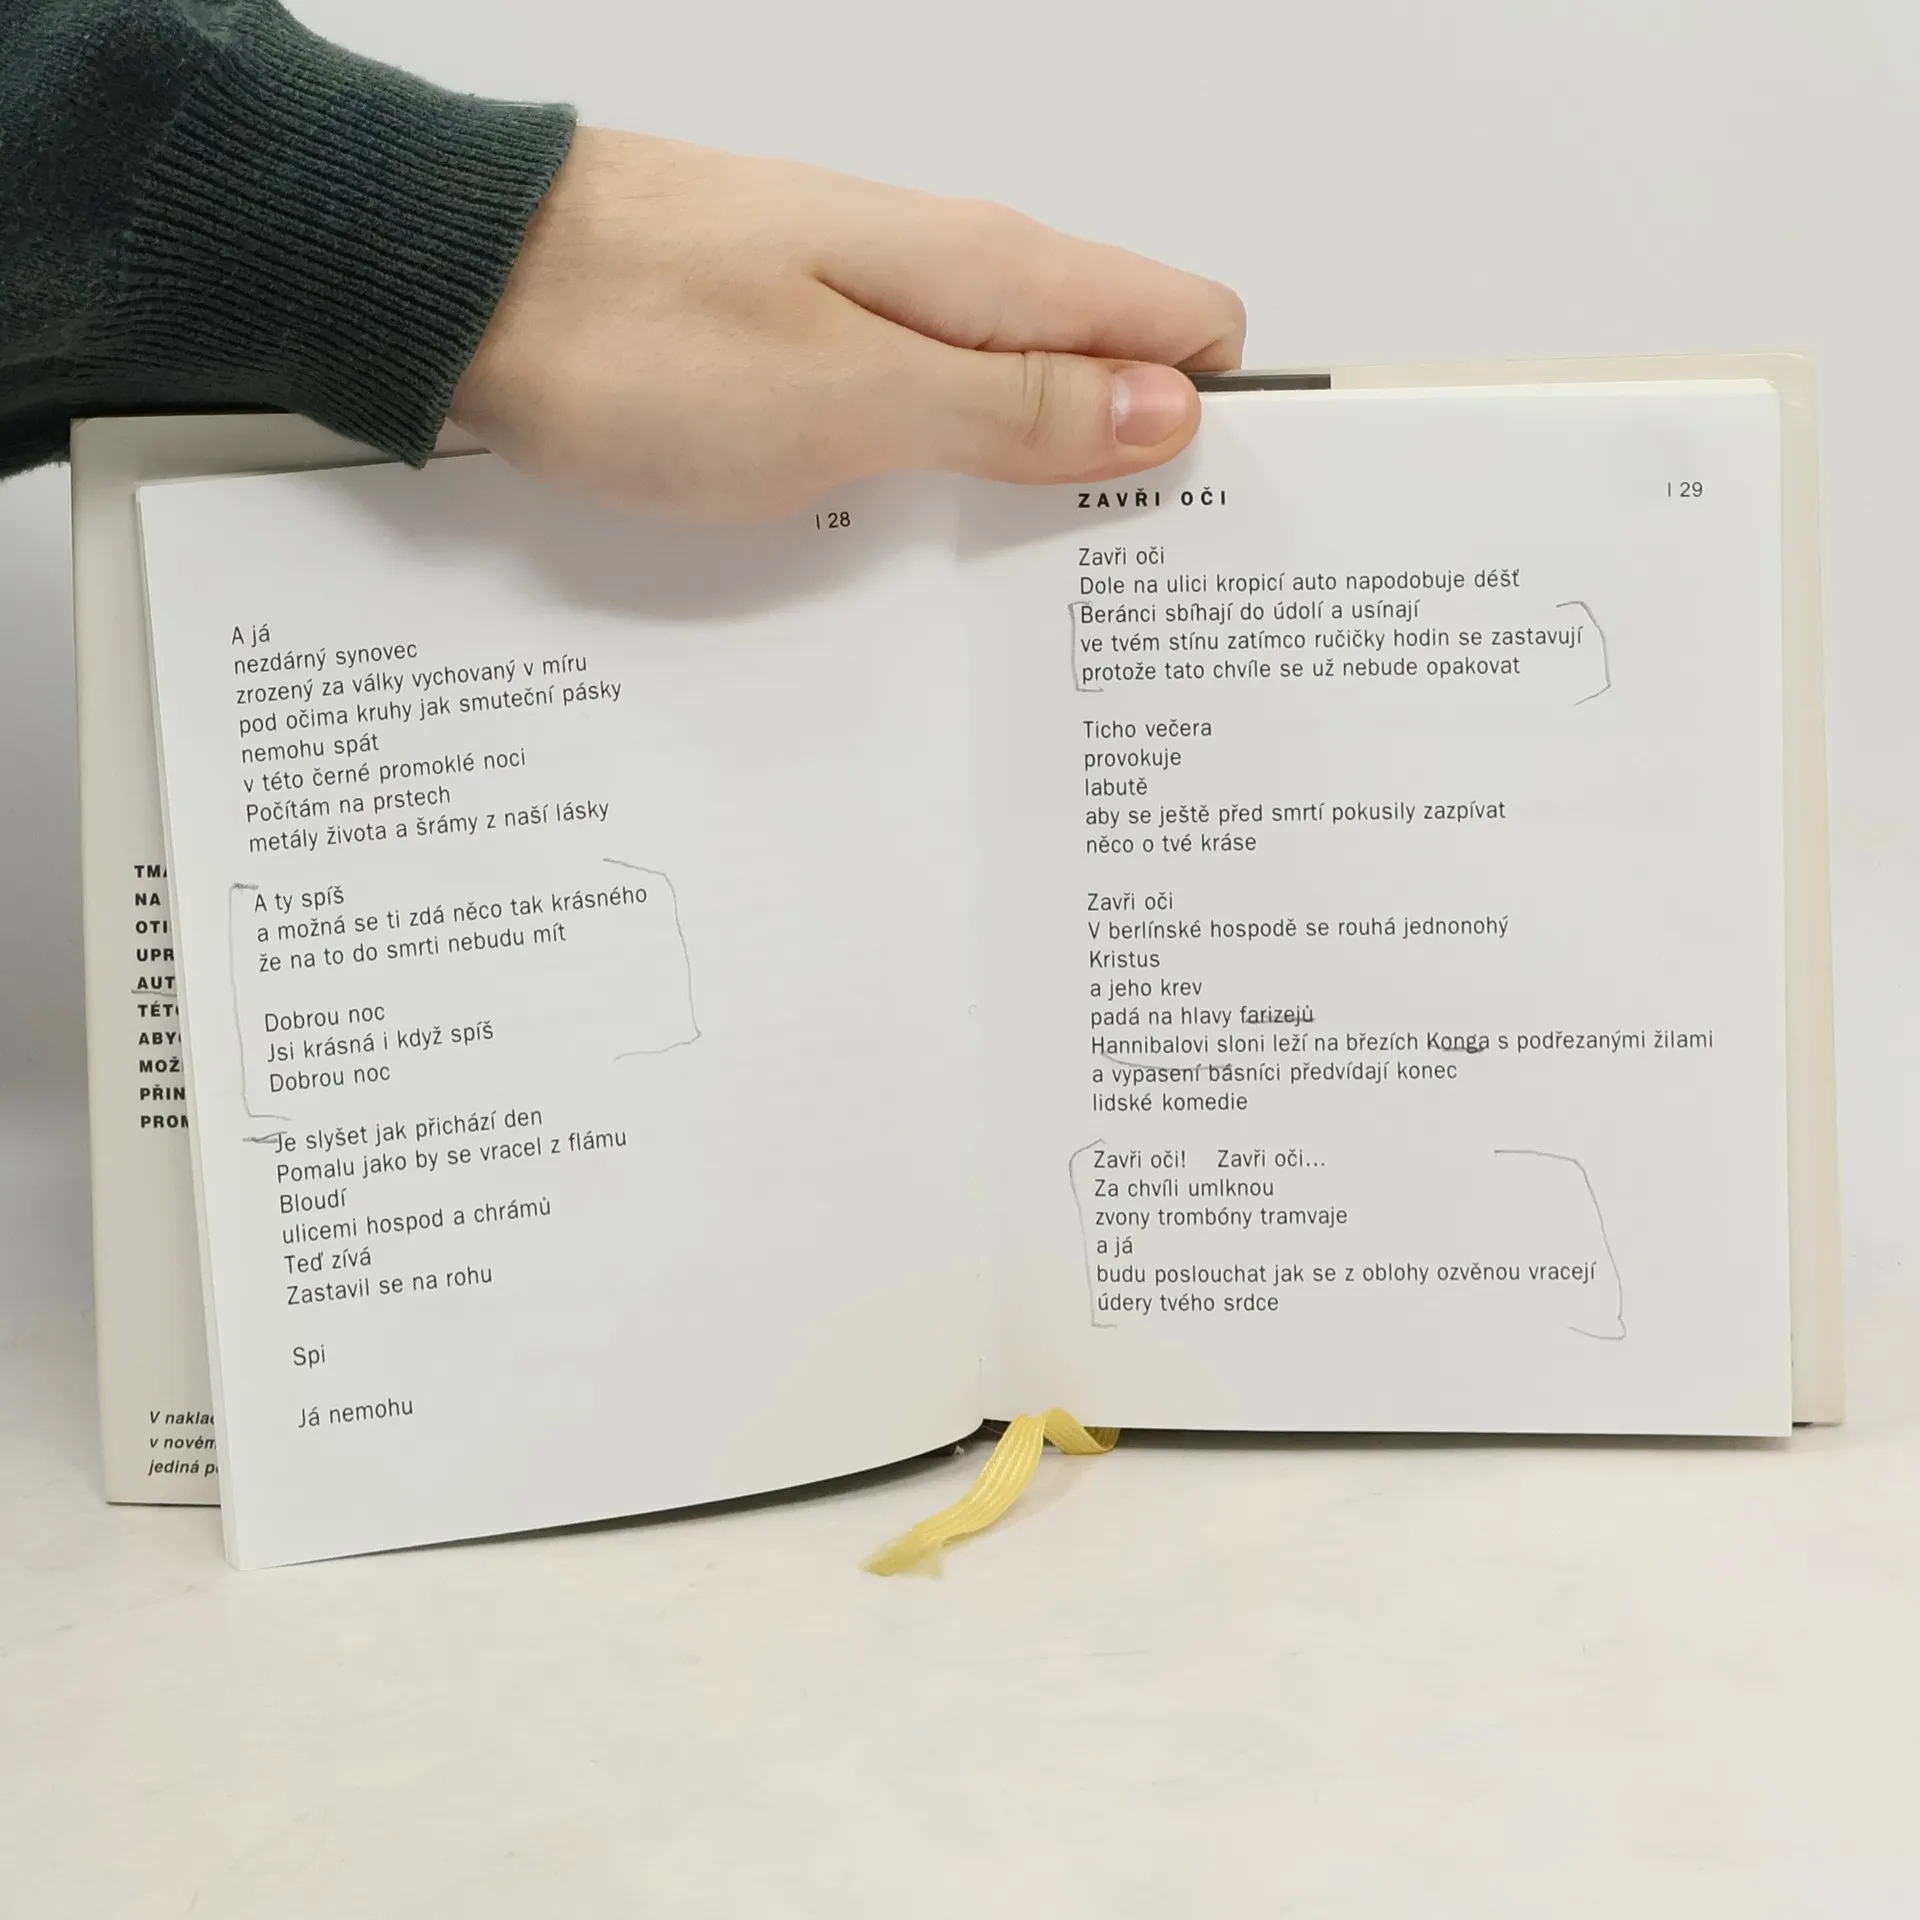 TMA
NA
OTI
UPR
AUT
TÉT
ABY
MOŽ
PŘIN
PROM
V naklad
v novém
jediná p
| 28
A já
nezdárný synovec
zrozený za války vychovaný v míru
pod očima kruhy jak smuteční pásky
nemohu spát
v této černé promoklé noci
Počítám na prstech
metály života a šrámy z naší lásky
A ty spíš
a možná se ti zdá něco tak krásného
že na to do smrti nebudu mít
Dobrou noc
Jsi krásná i když spíš
Dobrou noc
Je slyšet jak přichází den
Pomalu jako by se vracel z flámu
Bloudí
ulicemi hospod a chrámů
Teď zívá
Zastavil se na rohu
Spi
Já nemohu
| 29
ZAVŘI OČI
Zavři oči
Dole na ulici kropicí auto napodobuje déšť
Beránci sbíhají do údolí a usínají
ve tvém stínu zatímco ručičky hodin se zastavují
protože tato chvíle se už nebude opakovat
Ticho večera
provokuje
labutě
aby se ještě před smrtí pokusily zazpívat
něco o tvé kráse
Zavři oči
V berlínské hospodě se rouhá jednonohý
Kristus
a jeho krev
padá na hlavy farizejů
Hannibalovi sloni leží na březích Konga s podřezanými žilami
a vypasení básníci předvídají konec
lidské komedie
Zavři oči! Zavři oči...
Za chvíli umlknou
zvony trombóny tramvaje
a já
budu poslouchat jak se z oblohy ozvěnou vracejí
údery tvého srdce